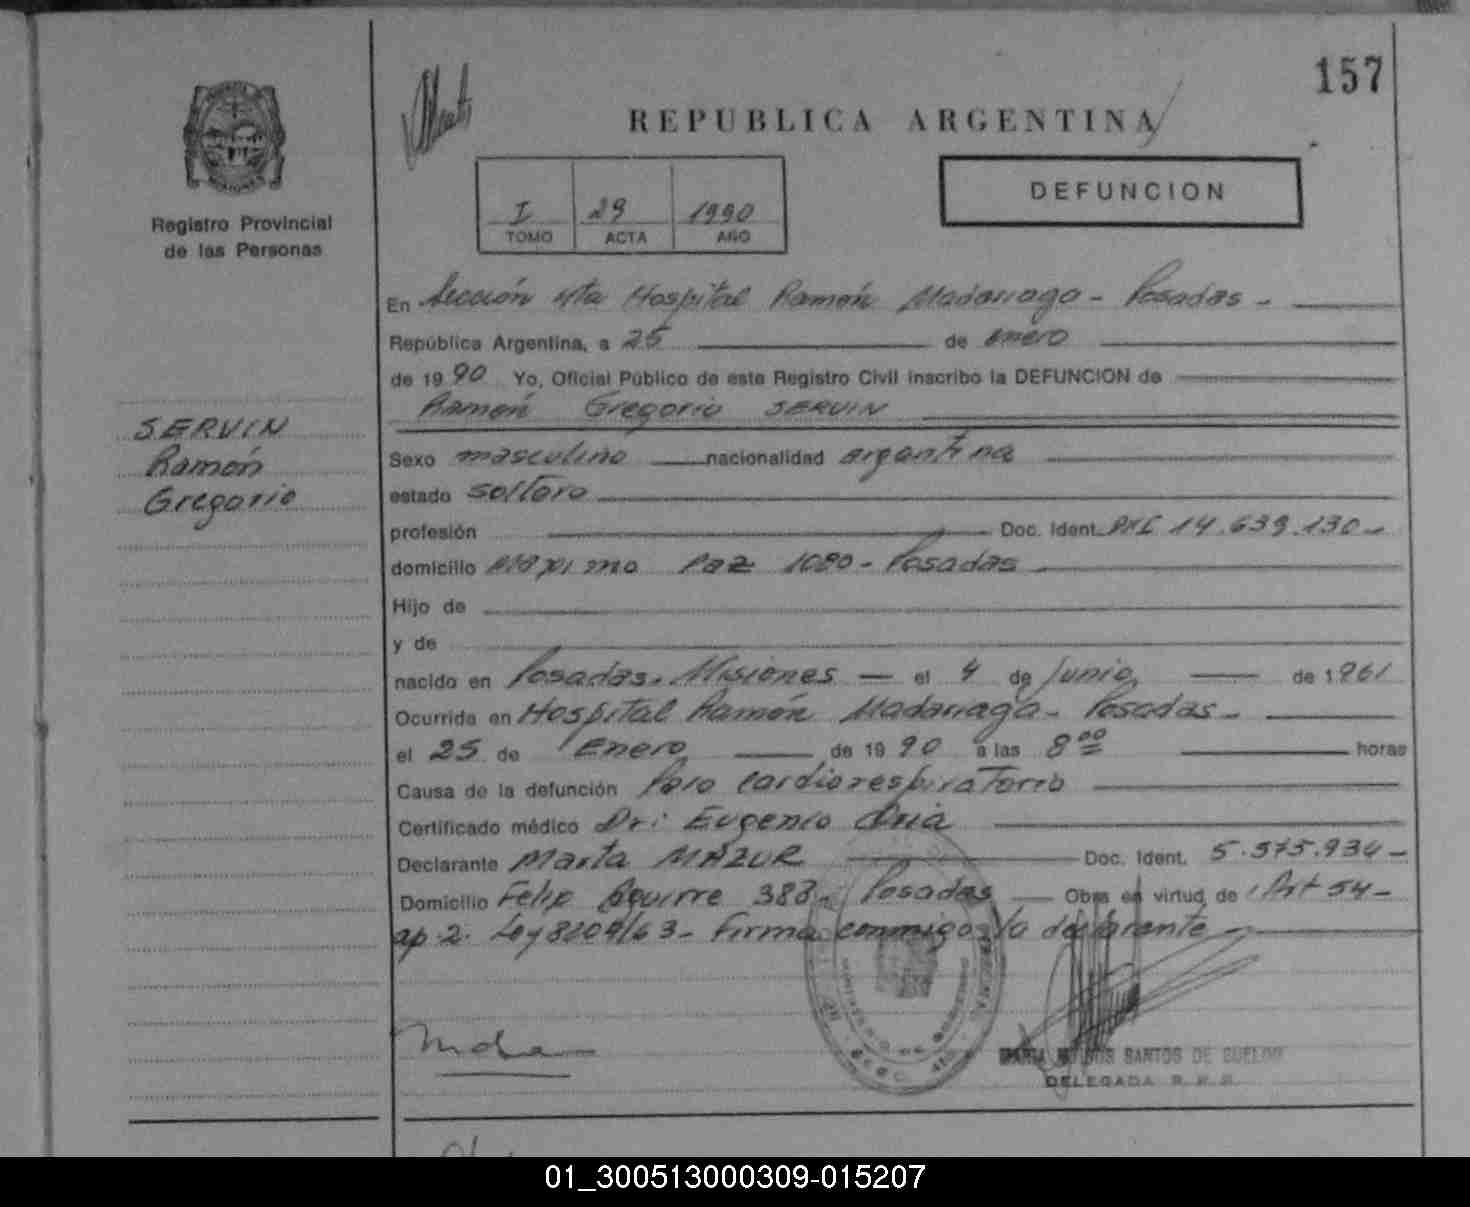 157
REPUBLICA ARGENTINA
DEFUNCION
I 29 1990
TOMO ACTA AÑO
Registro Provincial
de las Personas
SERVIN
Ramón
Gregorio
En Sección 4ta Hospital Ramón Madariaga - Posadas -
República Argentina, a 25 de enero
de 1990 Yo, Oficial Público de este Registro Civil inscribo la DEFUNCION de
Ramón Gregorio SERVIN
Sexo masculino nacionalidad argentina
estado soltero
profesión Doc. Ident. DNI 14.639.130-
domicilio Máximo Paz 1080 - Posadas
Hijo de
y de
nacido en Posadas - Misiones el 4 de Junio de 1961
Ocurrida en Hospital Ramón Madariaga - Posadas -
el 25 de Enero de 1990 a las 8 00 horas
Causa de la defunción Paro cardiorespiratorio
Certificado médico Dr: Eugenio
Declarante Marta MAZUR Doc. Ident. 5.575.934-
Domicilio Felix Aguirre 388 - Posadas Obra en virtud de Art 54-
ap. 2. Ley 8204/63 - Firma conmigo la declarante
SANTOS DE
DELEGADA R. P. P.
01_300513000309-015207